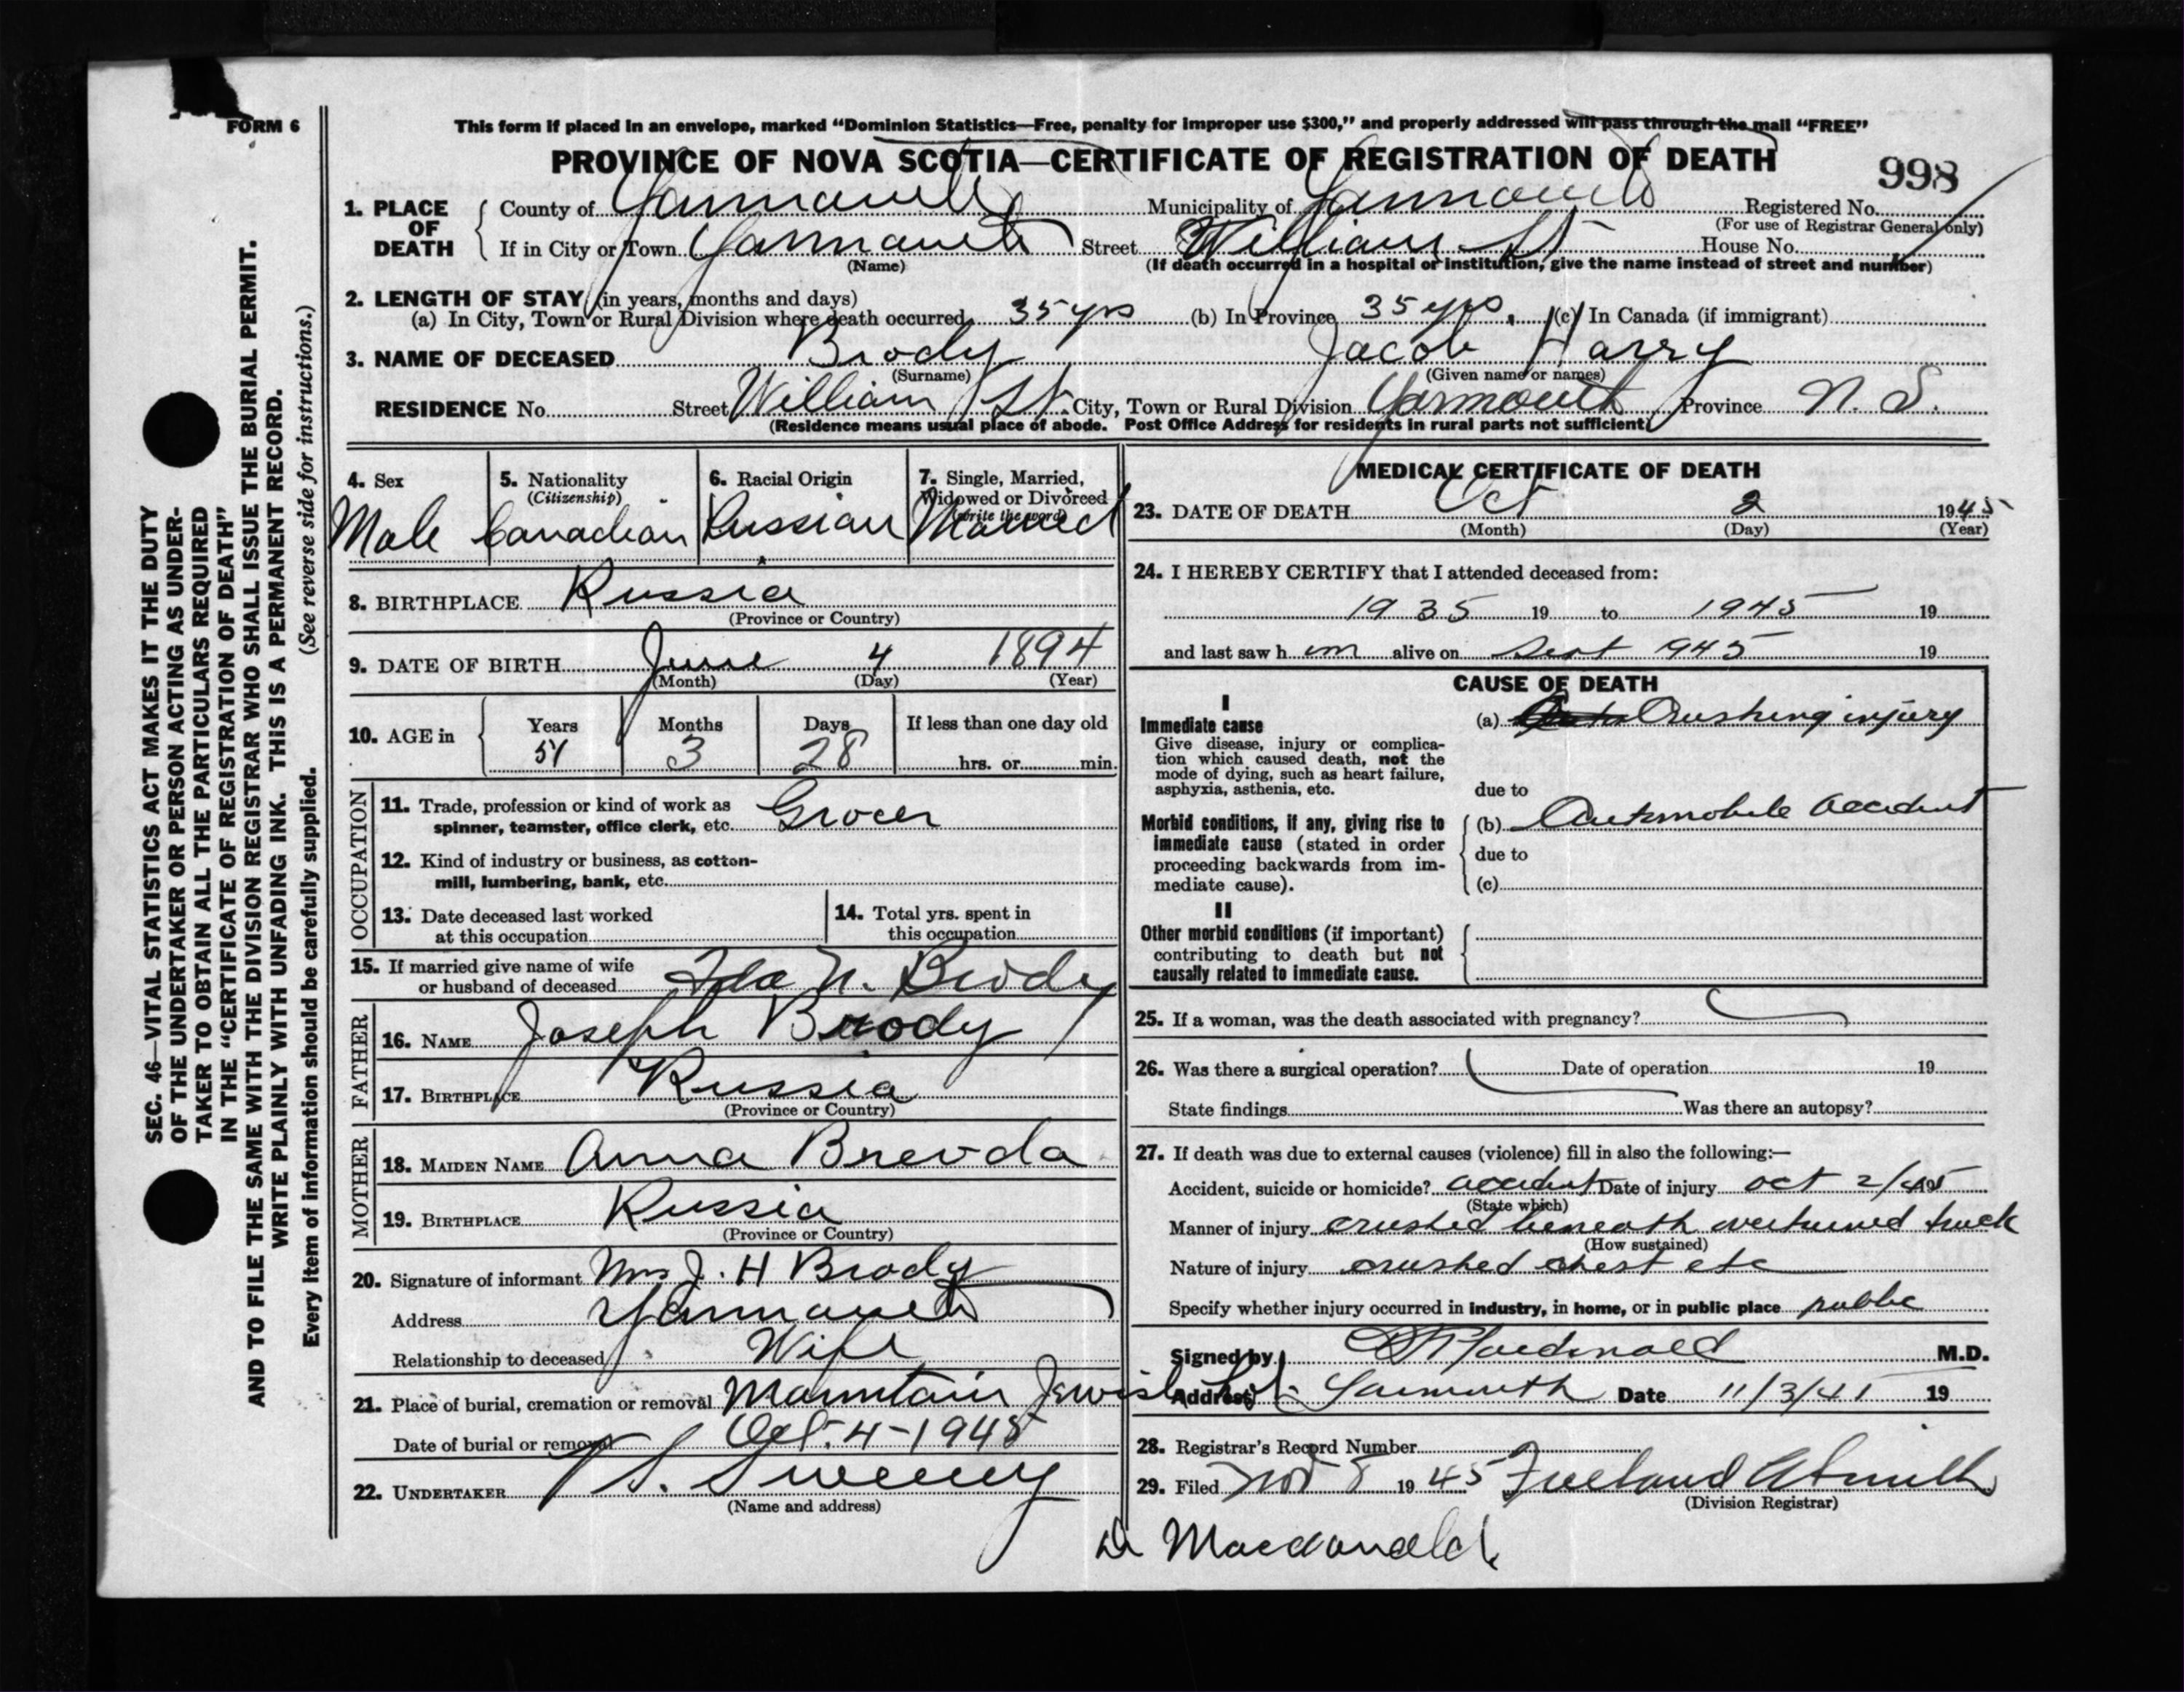 FORM 6
This form if placed in an envelope, marked “Dominion Statistics—Free, penalty for improper use $300,” and properly addressed will pass through the mail “FREE”
PROVINCE OF NOVA SCOTIA—CERTIFICATE OF REGISTRATION OF DEATH
998
1. PLACE OF DEATH
County of Yarmouth Municipality of Yarmouth Registered No.
(For use of Registrar General only)
If in City or Town Yarmouth Street William St House No.
(Name) (If death occurred in a hospital or institution, give the name instead of street and number)
2. LENGTH OF STAY (in years, months and days)
(a) In City, Town or Rural Division where death occurred 35 yrs (b) In Province 35 yrs. (c) In Canada (if immigrant)
3. NAME OF DECEASED Brody Jacob Harry
(Surname) (Given name or names)
RESIDENCE No. Street William St. City, Town or Rural Division Yarmouth Province N. S.
(Residence means usual place of abode. Post Office Address for residents in rural parts not sufficient)
4. Sex
Male
5. Nationality
(Citizenship)
Canadian
6. Racial Origin
Russian
7. Single, Married,
Widowed or Divorced
(write the word)
Married
8. BIRTHPLACE Russia
(Province or Country)
9. DATE OF BIRTH June 4 1894
(Month) (Day) (Year)
10. AGE in
Years Months Days If less than one day old
51 3 28 hrs. or min.
OCCUPATION
11. Trade, profession or kind of work as
spinner, teamster, office clerk, etc. Grocer
12. Kind of industry or business, as cotton-
mill, lumbering, bank, etc.
13. Date deceased last worked
at this occupation
14. Total yrs. spent in
this occupation
15. If married give name of wife
or husband of deceased Ida N. Brody
FATHER
16. NAME Joseph Brody
17. BIRTHPLACE Russia
(Province or Country)
MOTHER
18. MAIDEN NAME Anna Brevda
19. BIRTHPLACE Russia
(Province or Country)
20. Signature of informant Mrs J. H Brody
Address Yarmouth
Relationship to deceased Wife
21. Place of burial, cremation or removal Mountain Jewish Lot
Date of burial or removal Oct. 4-1945
22. UNDERTAKER V S. Sweeny
(Name and address)
MEDICAL CERTIFICATE OF DEATH
23. DATE OF DEATH Oct 2 1945
(Month) (Day) (Year)
24. I HEREBY CERTIFY that I attended deceased from:
1935 19 to 1945 19
and last saw h im alive on Sept 1945 19
CAUSE OF DEATH
I
Immediate cause
Give disease, injury or complica-
tion which caused death, not the
mode of dying, such as heart failure,
asphyxia, asthenia, etc.
(a) Crushing injury
due to
Morbid conditions, if any, giving rise to
immediate cause (stated in order
proceeding backwards from im-
mediate cause).
(b) Automobile accident
due to
(c)
II
Other morbid conditions (if important)
contributing to death but not
causally related to immediate cause.
25. If a woman, was the death associated with pregnancy?
26. Was there a surgical operation? Date of operation 19
State findings Was there an autopsy?
27. If death was due to external causes (violence) fill in also the following:—
Accident, suicide or homicide? accident Date of injury oct 2/45
(State which)
Manner of injury crushed beneath overturned truck
(How sustained)
Nature of injury crushed chest etc
Specify whether injury occurred in industry, in home, or in public place public
Signed by Macdonald M.D.
Address Yarmouth Date 11/3/45 19
28. Registrar's Record Number
29. Filed Nov 8 1945 Freeland A Smith
(Division Registrar)
Dr Macdonald
SEC. 46—VITAL STATISTICS ACT MAKES IT THE DUTY
OF THE UNDERTAKER OR PERSON ACTING AS UNDER-
TAKER TO OBTAIN ALL THE PARTICULARS REQUIRED
IN THE “CERTIFICATE OF REGISTRATION OF DEATH”
AND TO FILE THE SAME WITH THE DIVISION REGISTRAR WHO SHALL ISSUE THE BURIAL PERMIT.
WRITE PLAINLY WITH UNFADING INK. THIS IS A PERMANENT RECORD.
Every item of information should be carefully supplied. (See reverse side for instructions.)